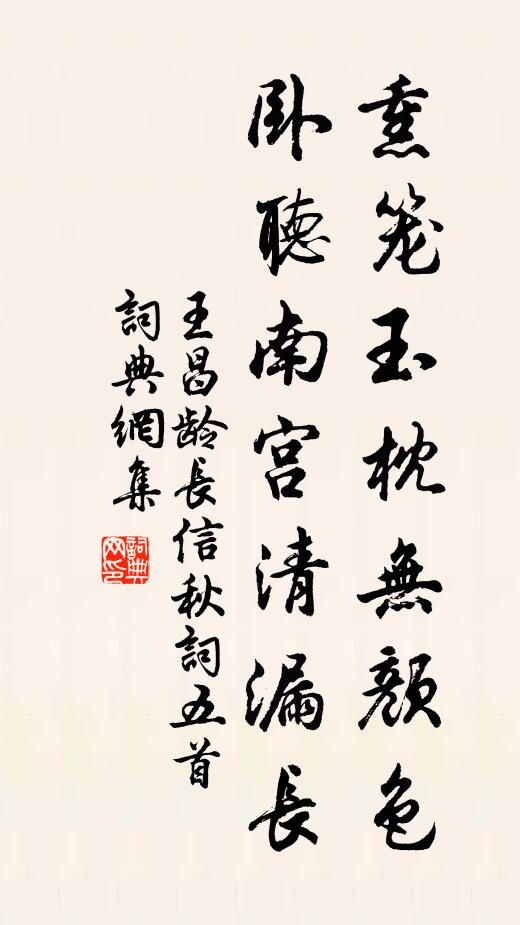 熏笼玉枕無顏色
卧聽南宫清漏長
王昌龄長信秋詞五首
詞典網集
詞典网印